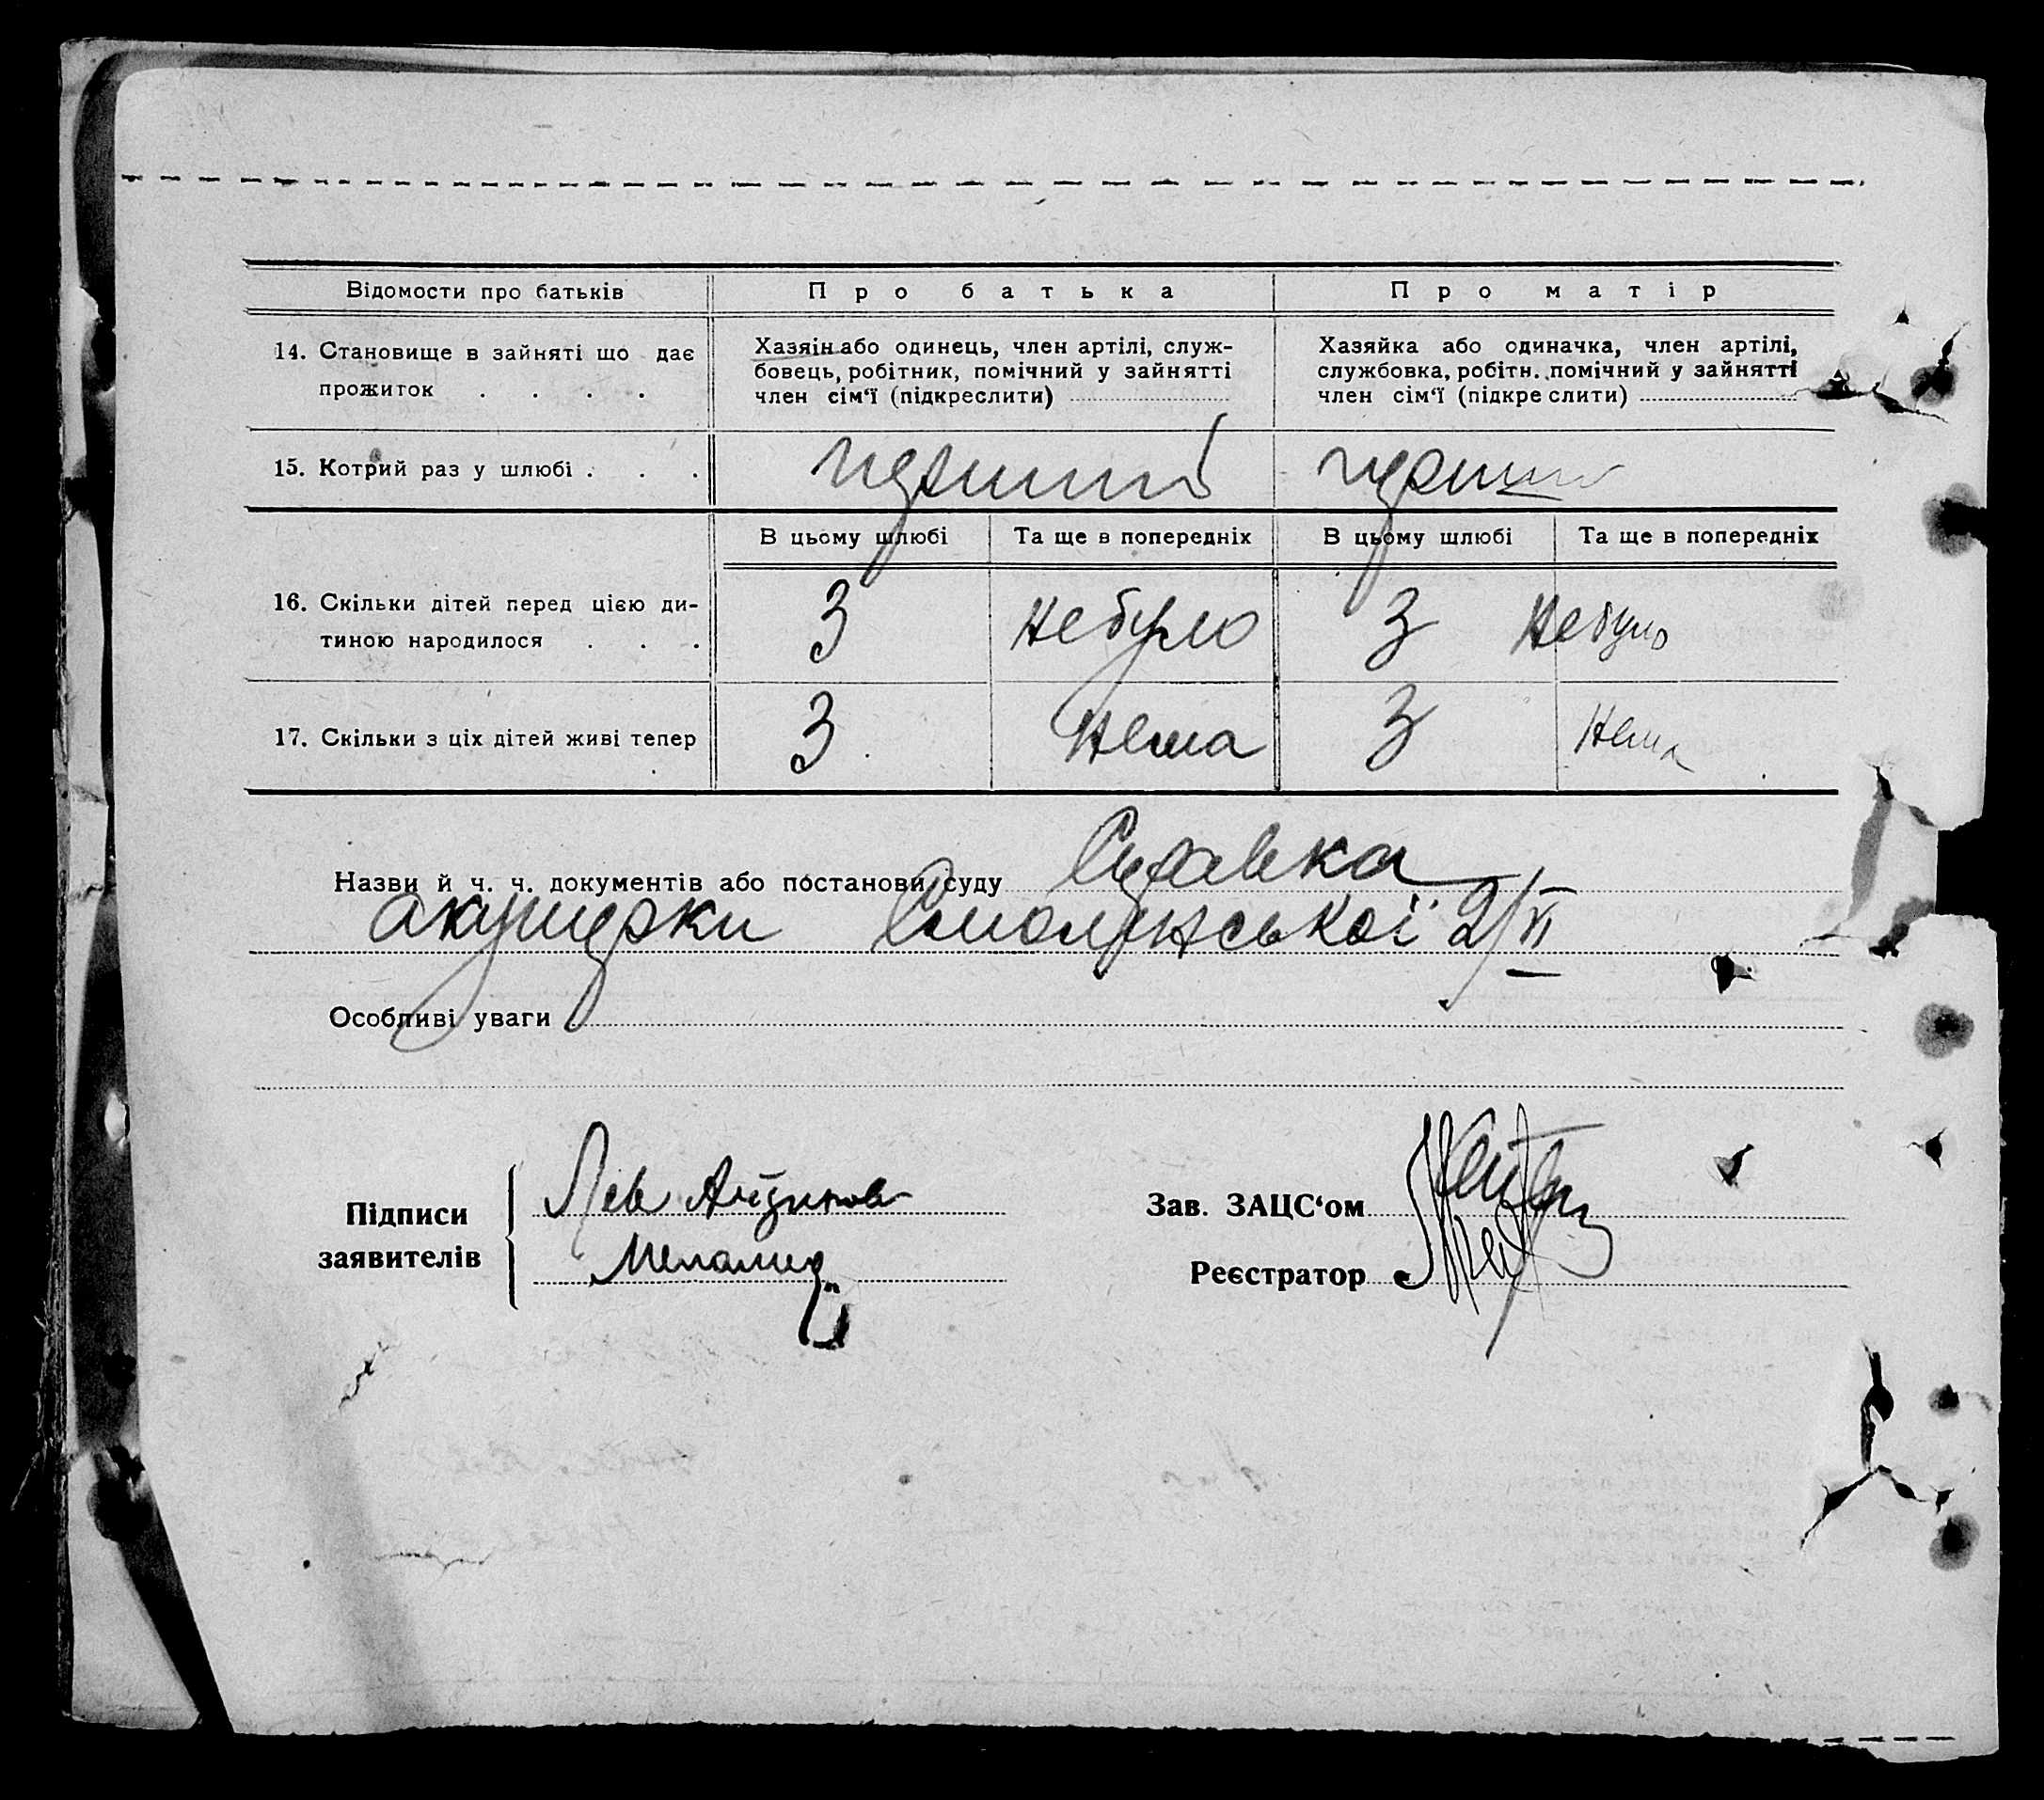 Відомости про батьків
Про батька
Про матір
14. Становище в зайняті що дає
прожиток . . . .
Хазяін або одинець, член артілі, служ-
бовець, робітник, помічний у зайнятті
член сім‘ї (підкреслити)
Хазяйка або одиначка, член артілі,
службовка, робітн. помічний у зайнятті
член сім‘ї (підкреслити)
15. Котрий раз у шлюбі . . .
перший
перший
В цьому шлюбі
Та ще в попередніх
В цьому шлюбі
Та ще в попередніх
16. Скільки дітей перед цією ди-
тиною народилося . . .
3
небуло
3
небуло
17. Скільки з ціх дітей живі тепер
3
нема
3
нема
Назви й ч. ч. документів або постанови суду Справка
акушерки 2/VI
Особливі уваги
Підписи
заявителів
Лев
Меламед
Зав. ЗАЦС‘ом
Реєстратор